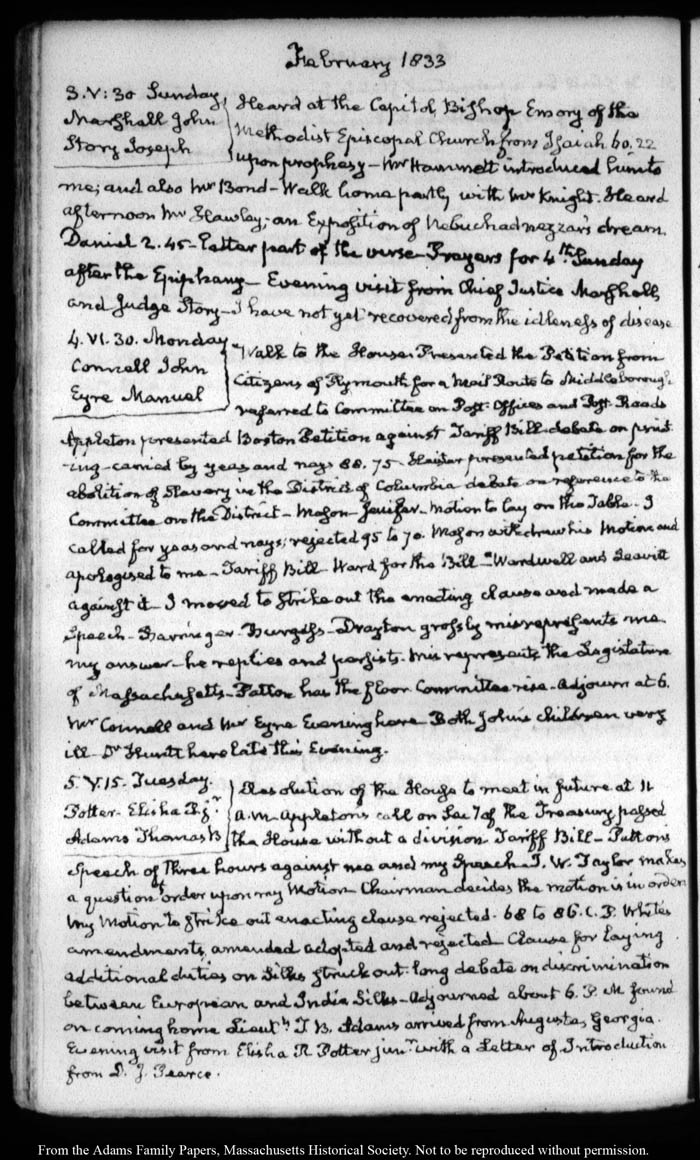 February 1833
3. V: 30 Sunday
Marshall John
Story Joseph
Heard at the Capitol, Bishop Emory of the
Methodist Episcopal Church from Isaiah 60.22
upon prophesy – Mr Hammett introduced him to
me; and also Mr Bond – Walk home partly with Mr Knight. Heard
afternoon Mr Hawley. an Exposition of Nebuchadnezzar's dream.
Daniel 2. 45 – latter part of the verse – Prayers for 4th Sunday
after the Epiphany – Evening visit from Chief Justice Marshall,
and Judge Story – I have not yet recovered from the idleness of disease
4. VI. 30. Monday
Connell John
Eyre Manuel
Walk to the House. Presented the Petition from
Citizens of Plymouth for a Mail Route to Middleborough
referred to Committee on Post-Offices and Post-Roads
Appleton presented Boston Petition against Tariff Bill. debate on print
-ing – carried by yeas and nays 88. 75. Heister presented petition for the
abolition of Slavery in the District of Columbia debate on reference to the
Committee on the District – Mason – Jenifer – motion to lay on the Table. I
called for yeas and nays; rejected 95 to 70. Mason withdrew his Motion and
apologised to me – Tariff Bill – Ward for the Bill – Wardwell and Leavitt
against it – I moved to strike out the enacting clause and made a
Speech – Barringer – Burgess – Drayton grossly misrepresents me
my answer – he replies and persists. misrepresents the Legislature
of Massachusetts – Patton has the floor Committee rise – Adjourn at 6.
Mr Connell and Mr Eyre Evening here. Both John's children very
ill – Dr Huntt here late this Evening.
5. V. 15. Tuesday.
Potter – Elisha R. jr
Adams Thomas B
Resolution of the House to meet in future at 11
A.M. Appletons call on Sec.y of the Treasury passed
the House without a division. Tariff Bill – Patton's
Speech of three hours against me and my Speech. J. W. Taylor makes
a question of order upon my Motion – Chairman decides the motion is in order
My Motion to strike out enacting clause rejected. 68 to 86. C. P. White's
amendments, amended adopted and rejected – Clause for laying
additional duties on Silks struck out – long debate on discrimination
between European and India Silks – Adjourned about 6. P.M. found
on coming home Lieutt T B. Adams arrived from Augusta, Georgia.
Evening visit from Elisha R. Potter junr with a Letter of Introduction
from D. J. Pearce.
From the Adams Family Papers, Massachusetts Historical Society. Not to be reproduced without permission.